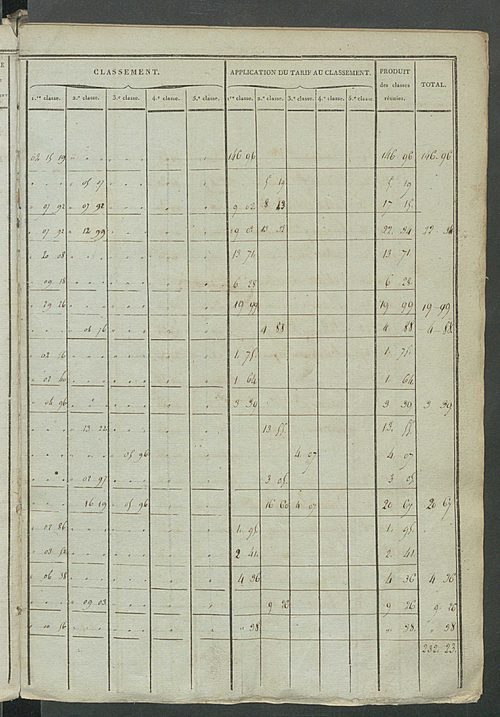 CLASSEMENT. APPLICATION DU TARIF AU CLASSEMENT. PRODUIT des classes réunies. TOTAL.
1.re classe. 2.e classe. 3.e classe. 4.e classe. 5.e classe. 1.re classe. 2.e classe. 3.e classe. 4.e classe. 5.e classe.
15 19 146 96 146 96 146 96
5 19 5 19
07 92 07 92 9 02 8 13 17 15
07 92 12 99 22 34
13 71 13 71
09 18 6 28 6 28
29 26 19 99 19 99 19 99
4 88 4 88 4 88
02 16 1 75 1 75
02 1 64 1 64
04 96 3 39 3 39 3 39
13 55 13 55
05 96 4 07 4 07
02 97 3 05 3 05
16 19 05 96 16 60 4 07 20 67 20 67
02 86 1 95 1 95
03 2 41 2 41
06 38 4 36 4 36 4 36
09 03 9 26 9 26 9 26
16 98 98 98
232 23